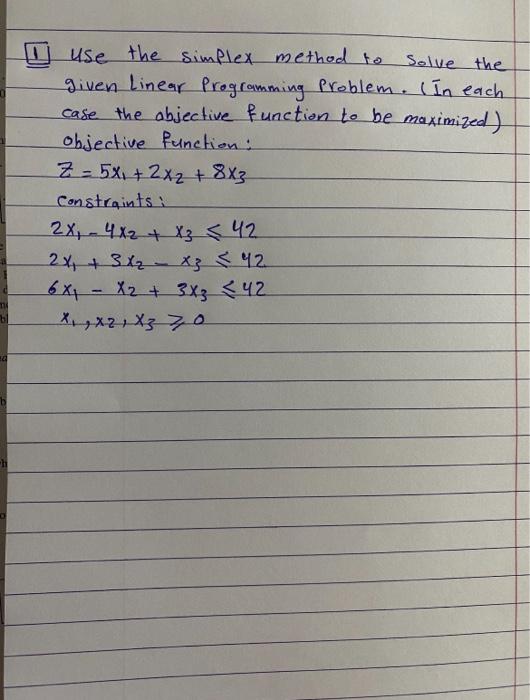 1 Use the simplex method to Solve the
given Linear Programming Problem. (In each
case the objective function to be maximized)
objective function:
Z = 5x₁ + 2x₂ + 8x₃
Constraints:
2x₁ - 4x₂ + x₃ ≤ 42
2x₁ + 3x₂ - x₃ ≤ 42
6x₁ - x₂ + 3x₃ ≤ 42
x₁, x₂, x₃ ≥ 0